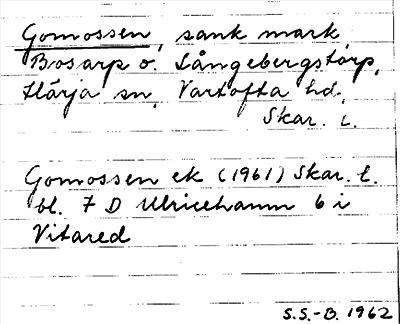 Gomossen, sank mark,
Bosarp o. Långebergstorp,
Härja sn, Vartofta hd,
Skar. l.
Gomossen ek (1961) Skar. l.
bl. 7 D Ulricehamn 6 i
Vitared
S.S.-B. 1962